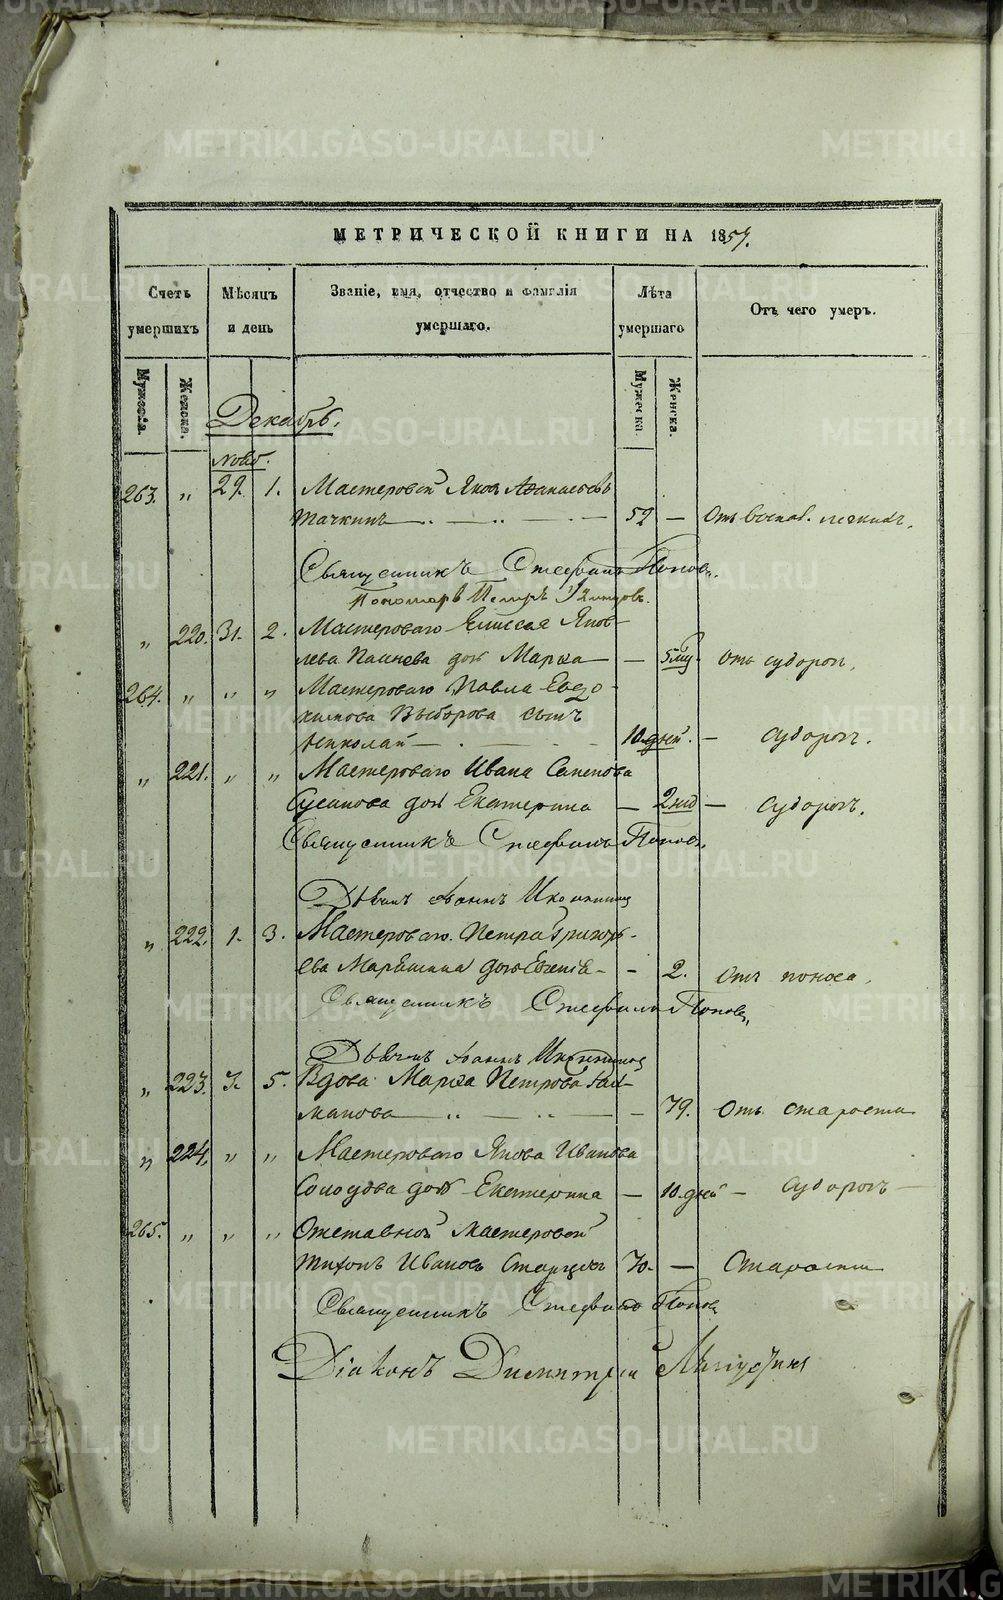 МЕТРИЧЕСКОЙ КНИГИ НА 1857.
Счетъ умершихъ
Мѣсяцъ и день
Званіе, имя, отчество и фамилія умершаго.
Лѣта умершаго
Отъ чего умеръ.
Мужеска.
Женска.
Мужеска.
Женска.
Декабрь.
Нояб.
263. „ 29. 1. Мастеровой Яковъ Аѳанасьевъ
Тачкинъ 52 — Отъ воспал. легкихъ.
Священникъ Стефанъ Поповъ.
Пономарь Петръ
„ 220. 31. 2. Мастероваго Елисея Яков-
лева дочь Марѳа — 5 мц. отъ судорогъ.
264. „ „ „ Мастероваго Павла Евдо-
кимова Выборова сынъ
Николай 10 дней. — судорогъ.
„ 221. „ „ Мастероваго Ивана Семенова
Сусанова дочь Екатерина — 2 нед — судорогъ.
Священникъ Стефанъ Поповъ.
Дьячекъ Іоаннъ
„ 222. 1. 3. Мастероваго Петра Григорь-
ева дочь Евгенія — 2. отъ поноса.
Священникъ Стефанъ Поповъ.
Дьячекъ Іоаннъ
„ 223. 3. 5. Вдова Марѳа Петрова
— 79. Отъ старости
„ 224. „ „ Мастероваго Якова Иванова
дочь Екатерина — 10 дней — судорогъ
265. „ „ „ Отставной мастеровой
Тихонъ Ивановъ Старцовъ 70. — Старости
Священникъ Стефанъ Поповъ
Діаконъ Димитрій
METRIKI.GASO-URAL.RU